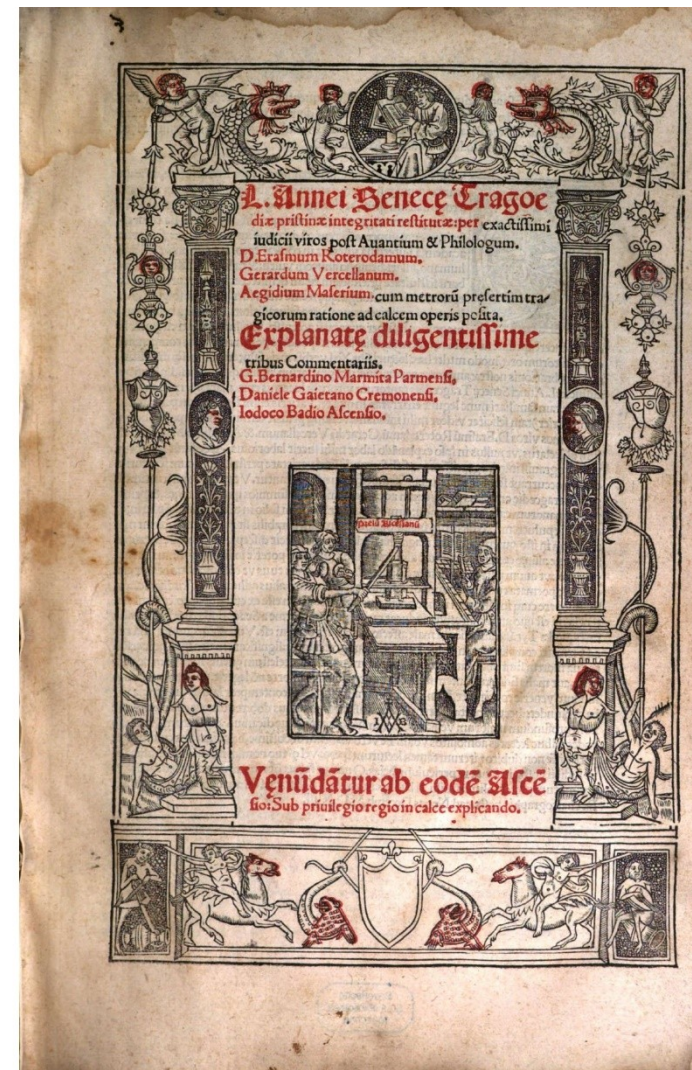 L. Annei Senecę Tragoe
diæ pristinæ integritati restitutæ: per exactissimi
iudicii viros post Auantium & Philologum.
D. Erasmum Roterodamum.
Gerardum Vercellanum.
Aegidium Maserium. cum metrorū presertim tra/
gicorum ratione ad calcem operis posita.
Explanatę diligentissime
tribus Commentariis.
G. Bernardino Marmita Parmensi.
Daniele Gaietano Cremonensi.
Iodoco Badio Ascensio.
Prelū Ascēsianū
I B
Vęnūdātur ab eodē Ascē
sio: Sub priuilegio regio in calce explicando.